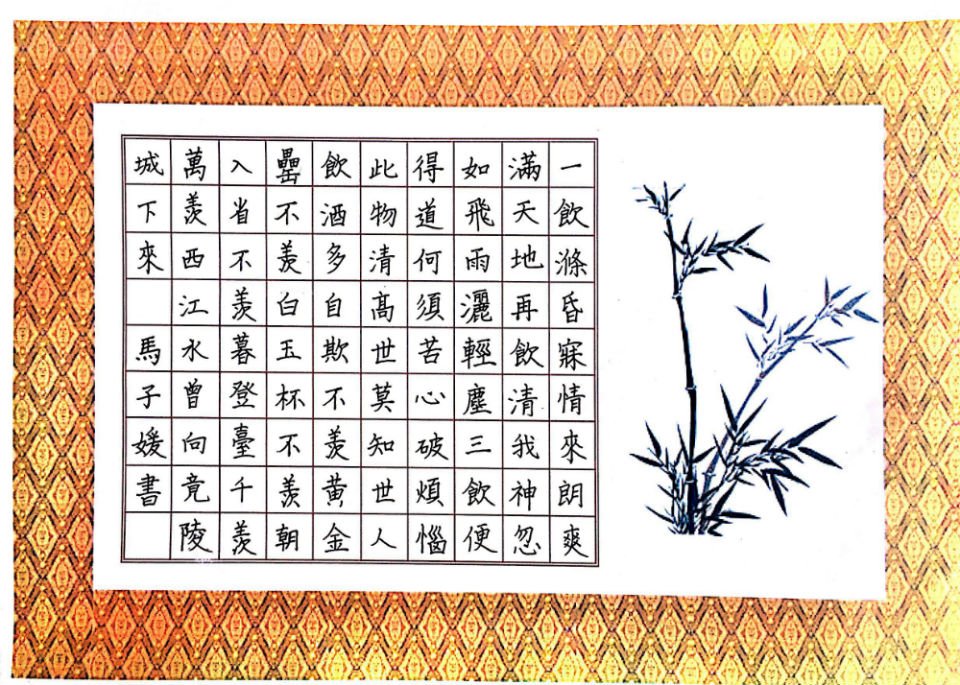 一飲滌昏寐情來朗爽
滿天地再飲清我神忽
如飛雨灑輕塵三飲便
得道何須苦心破煩惱
此物清高世莫知世人
飲酒多自欺不羨黃金
罍不羨白玉杯不羨朝
入省不羨暮登臺千羨
萬羨西江水曾向竟陵
城下來 馬子媛書